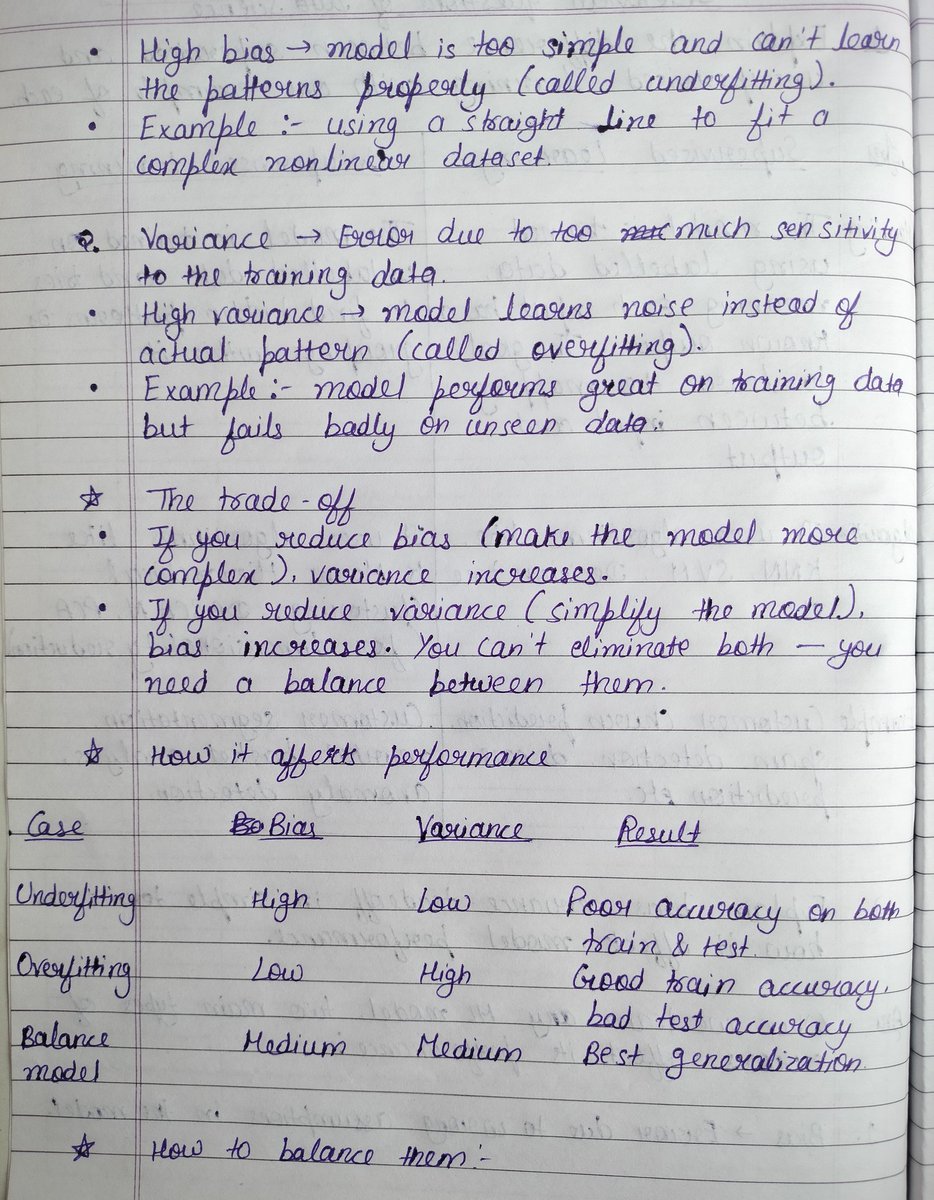 • High bias → model is too simple and can't learn
the patterns properly (called underfitting).
• Example :- using a straight line to fit a
complex nonlinear dataset.
2. Variance → Error due to too much sensitivity
to the training data.
• High variance → model learns noise instead of
actual pattern (called overfitting).
• Example :- model performs great on training data
but fails badly on unseen data.
☆ The trade-off
• If you reduce bias (make the model more
complex), variance increases.
• If you reduce variance (simplify the model),
bias increases. You can't eliminate both — you
need a balance between them.
☆ How it affects performance
Case Bias Variance Result
Underfitting High Low Poor accuracy on both
train & test.
Overfitting Low High Good train accuracy,
bad test accuracy
Balance Medium Medium Best generalization
model
☆ How to balance them :-